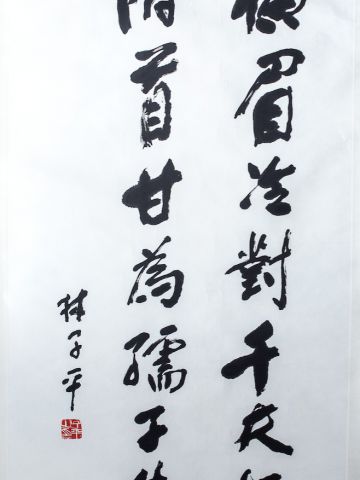 横眉冷對千夫
俯首甘為孺子
林子平